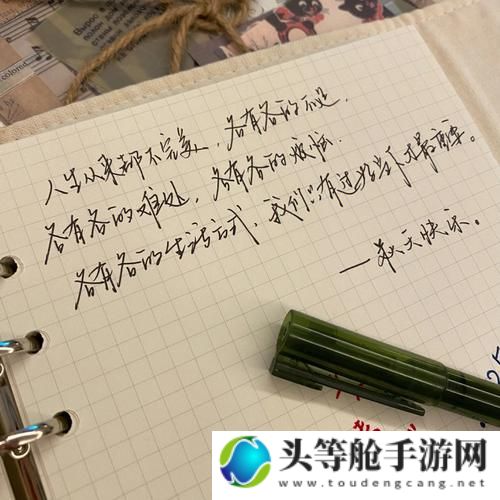 人生从来都不完美，各有各的不足，
各有各的难处，各有各的烦恼，
各有各的生活方式，我们只有过好当下才最重要。
—秋天快乐。
头等舱手游网
www.toudengcang.net